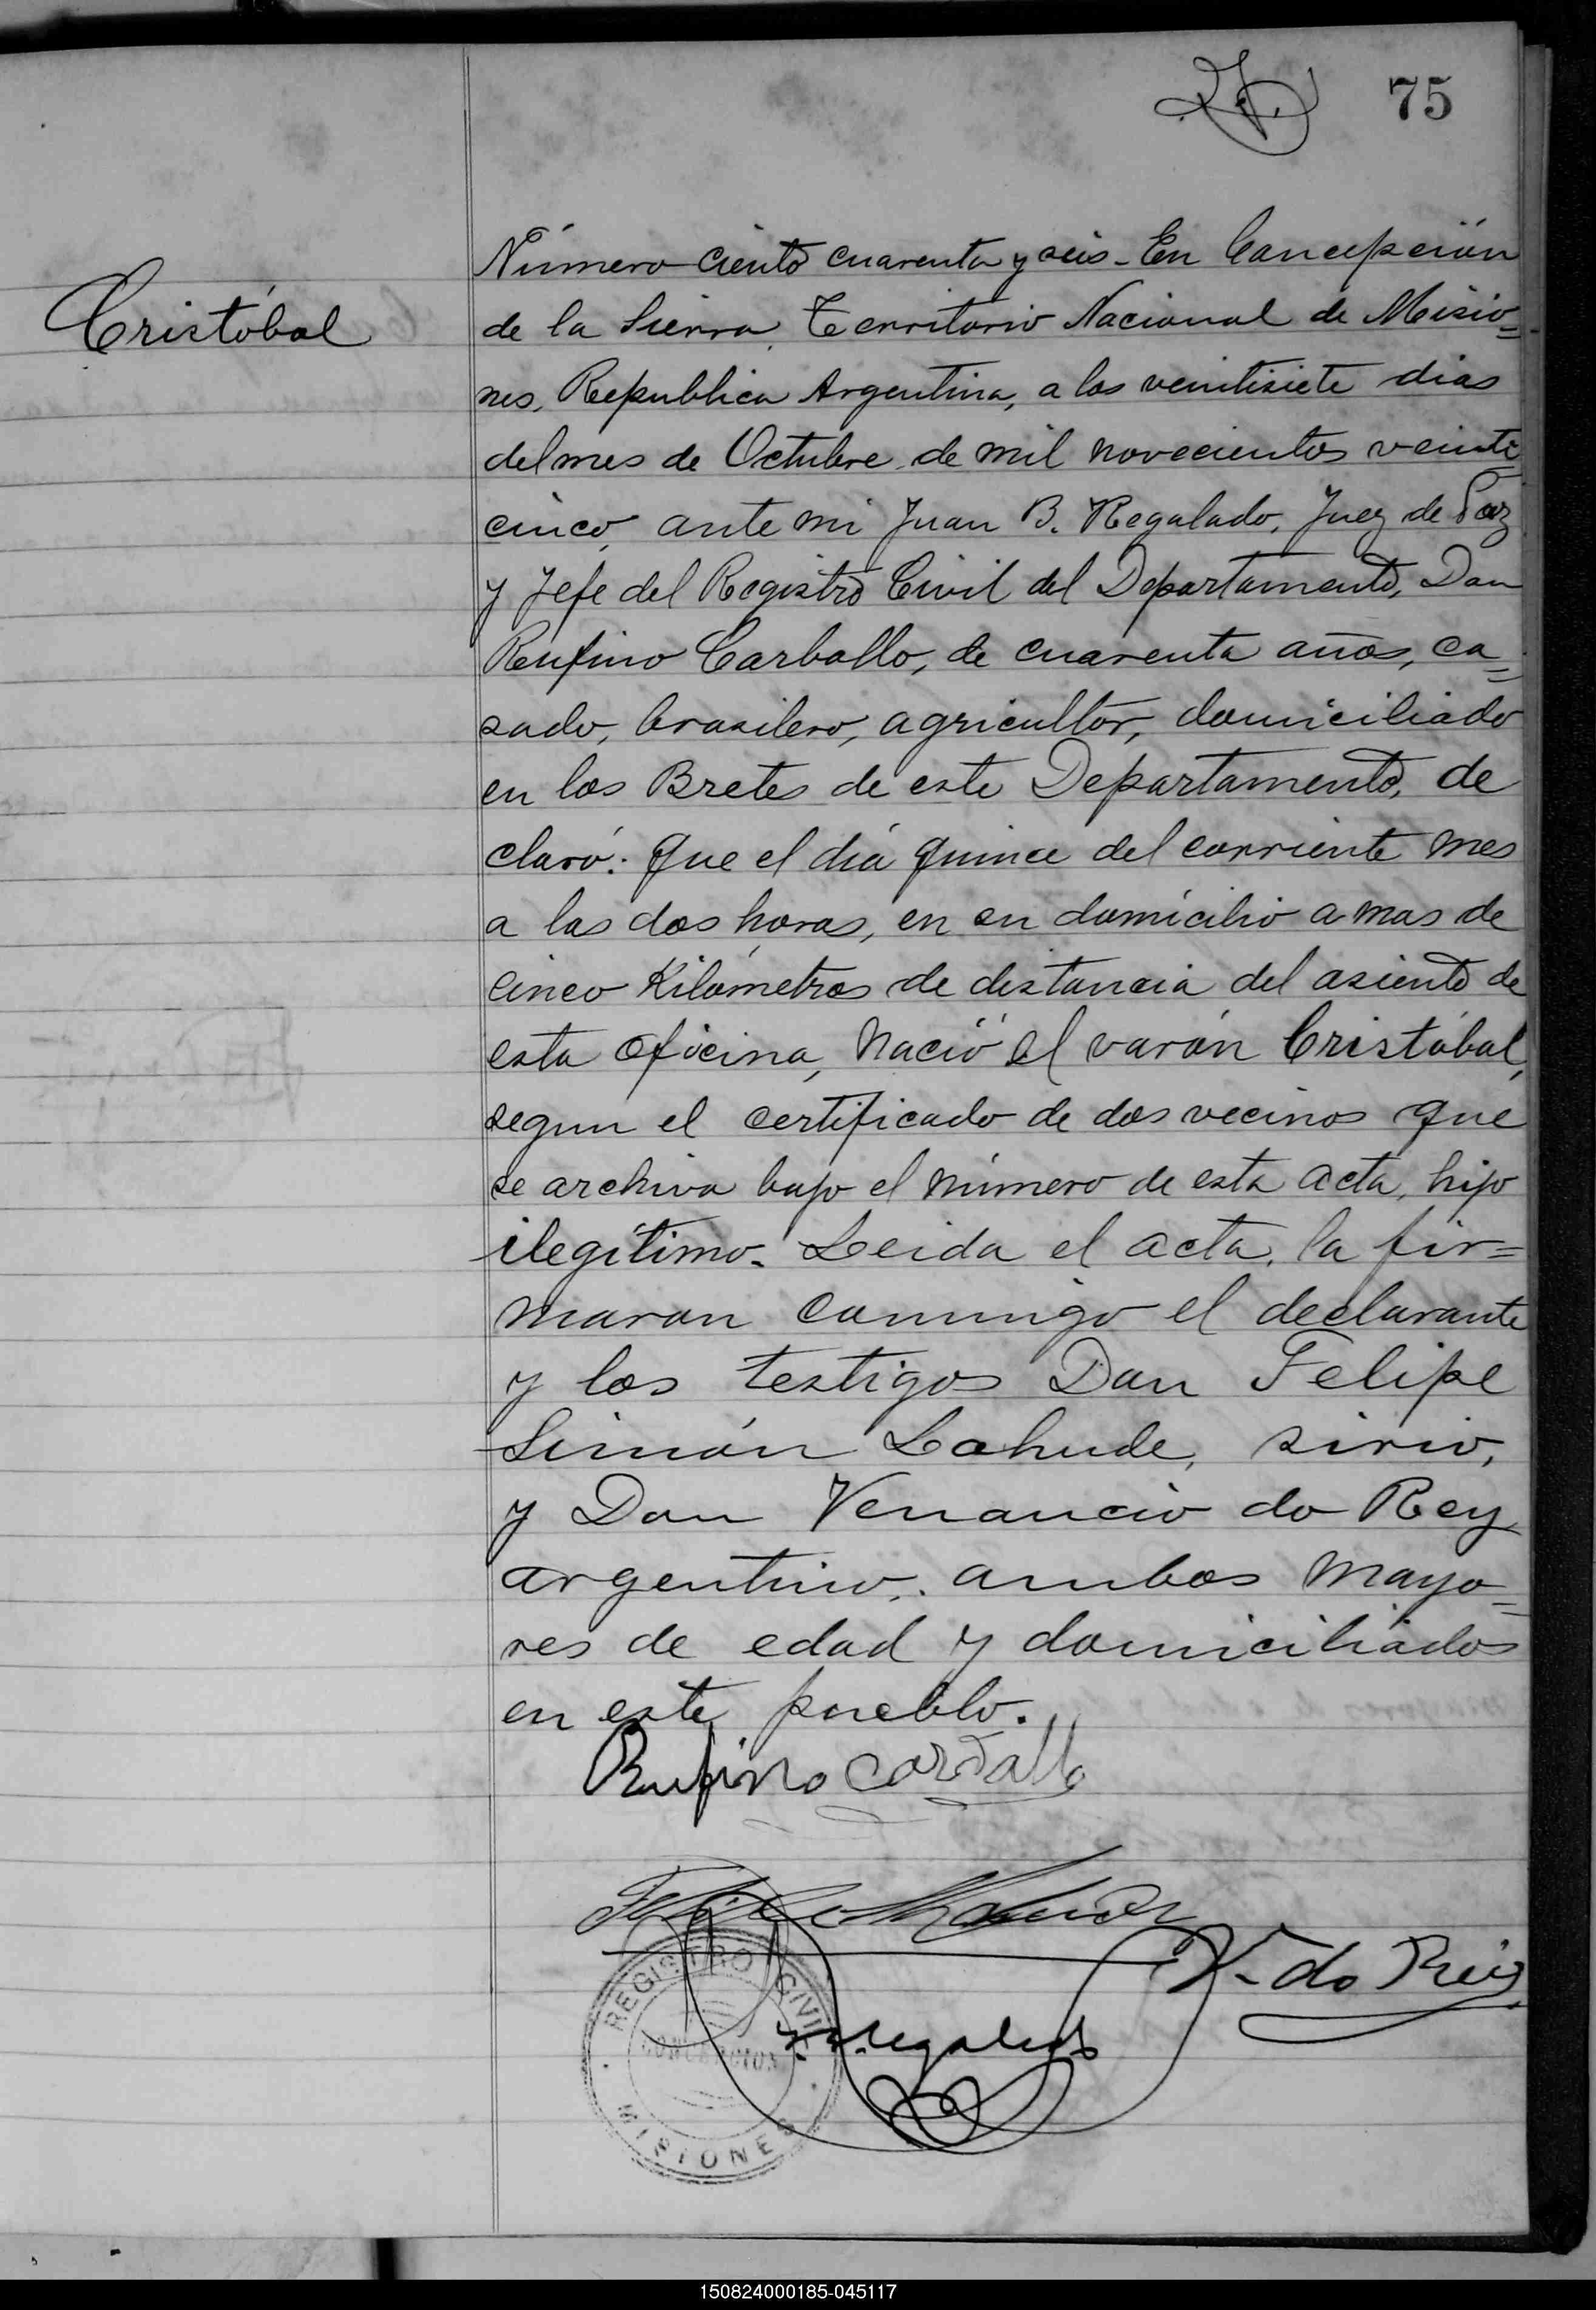 75
Cristóbal
Número ciento cuarenta y seis - En Concepción
de la Sierra, Territorio Nacional de Misio=
nes, Republica Argentina, a los veintisiete dias
del mes de Octubre de mil novecientos veinti
cinco, ante mi Juan B. Regalado, Juez de Paz
y Jefe del Registro Civil del Departamento, Don
Rufino Carballo, de cuarenta años, ca=
sado, brasilero, agricultor, domiciliado
en los Bretes de este Departamento, de
claró: Que el día quince del corriente mes
a las dos horas, en su domicilio a mas de
cinco Kilómetros de distancia del asiento de
esta oficina, nació el varón Cristóbal,
segun el certificado de dos vecinos que
se archiva bajo el número de esta acta, hijo
ilegítimo. Leida el acta, la fir=
maron conmigo el declarante
y los testigos Don Felipe
Simón Lahude, sirio,
y Don Venancio do Rey
argentino, ambos mayo=
res de edad y domiciliados
en este pueblo.
Rufino Carballo
V. do Reis
REGISTRO CIVIL
CONCEPCION
MISIONES
150824000185-045117